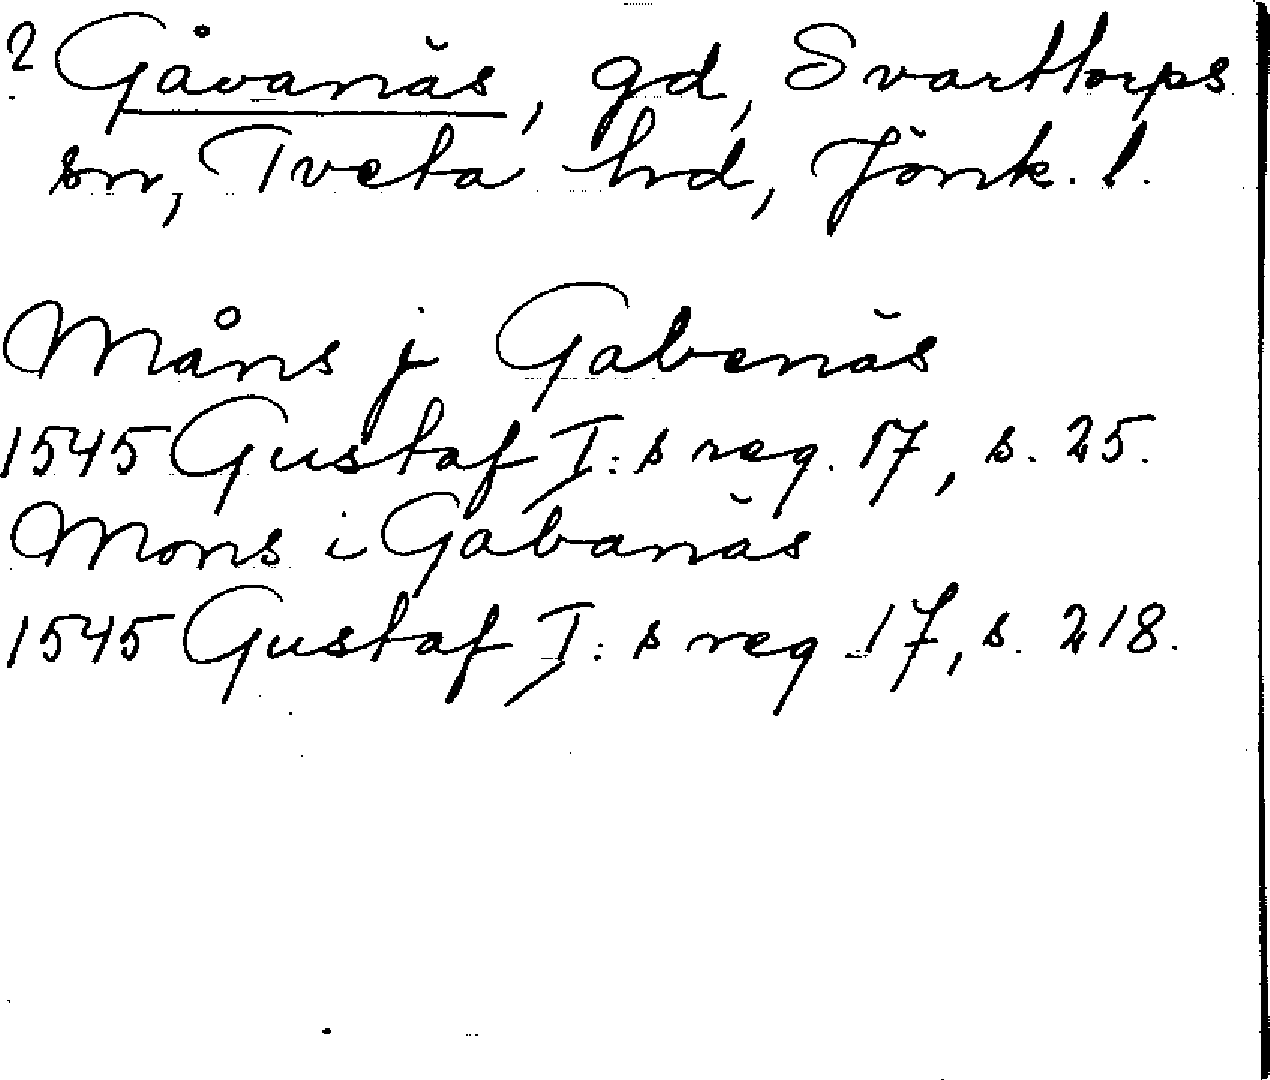 ? Gåvanäs, gd, Svarttorps
sn, Tveta hrd, Jönk. l.
Måns j Gabenäs
1545 Gustaf I:s reg. 17, s. 25.
Mons i Gabanäs
1545 Gustaf I:s reg 17, s. 218.